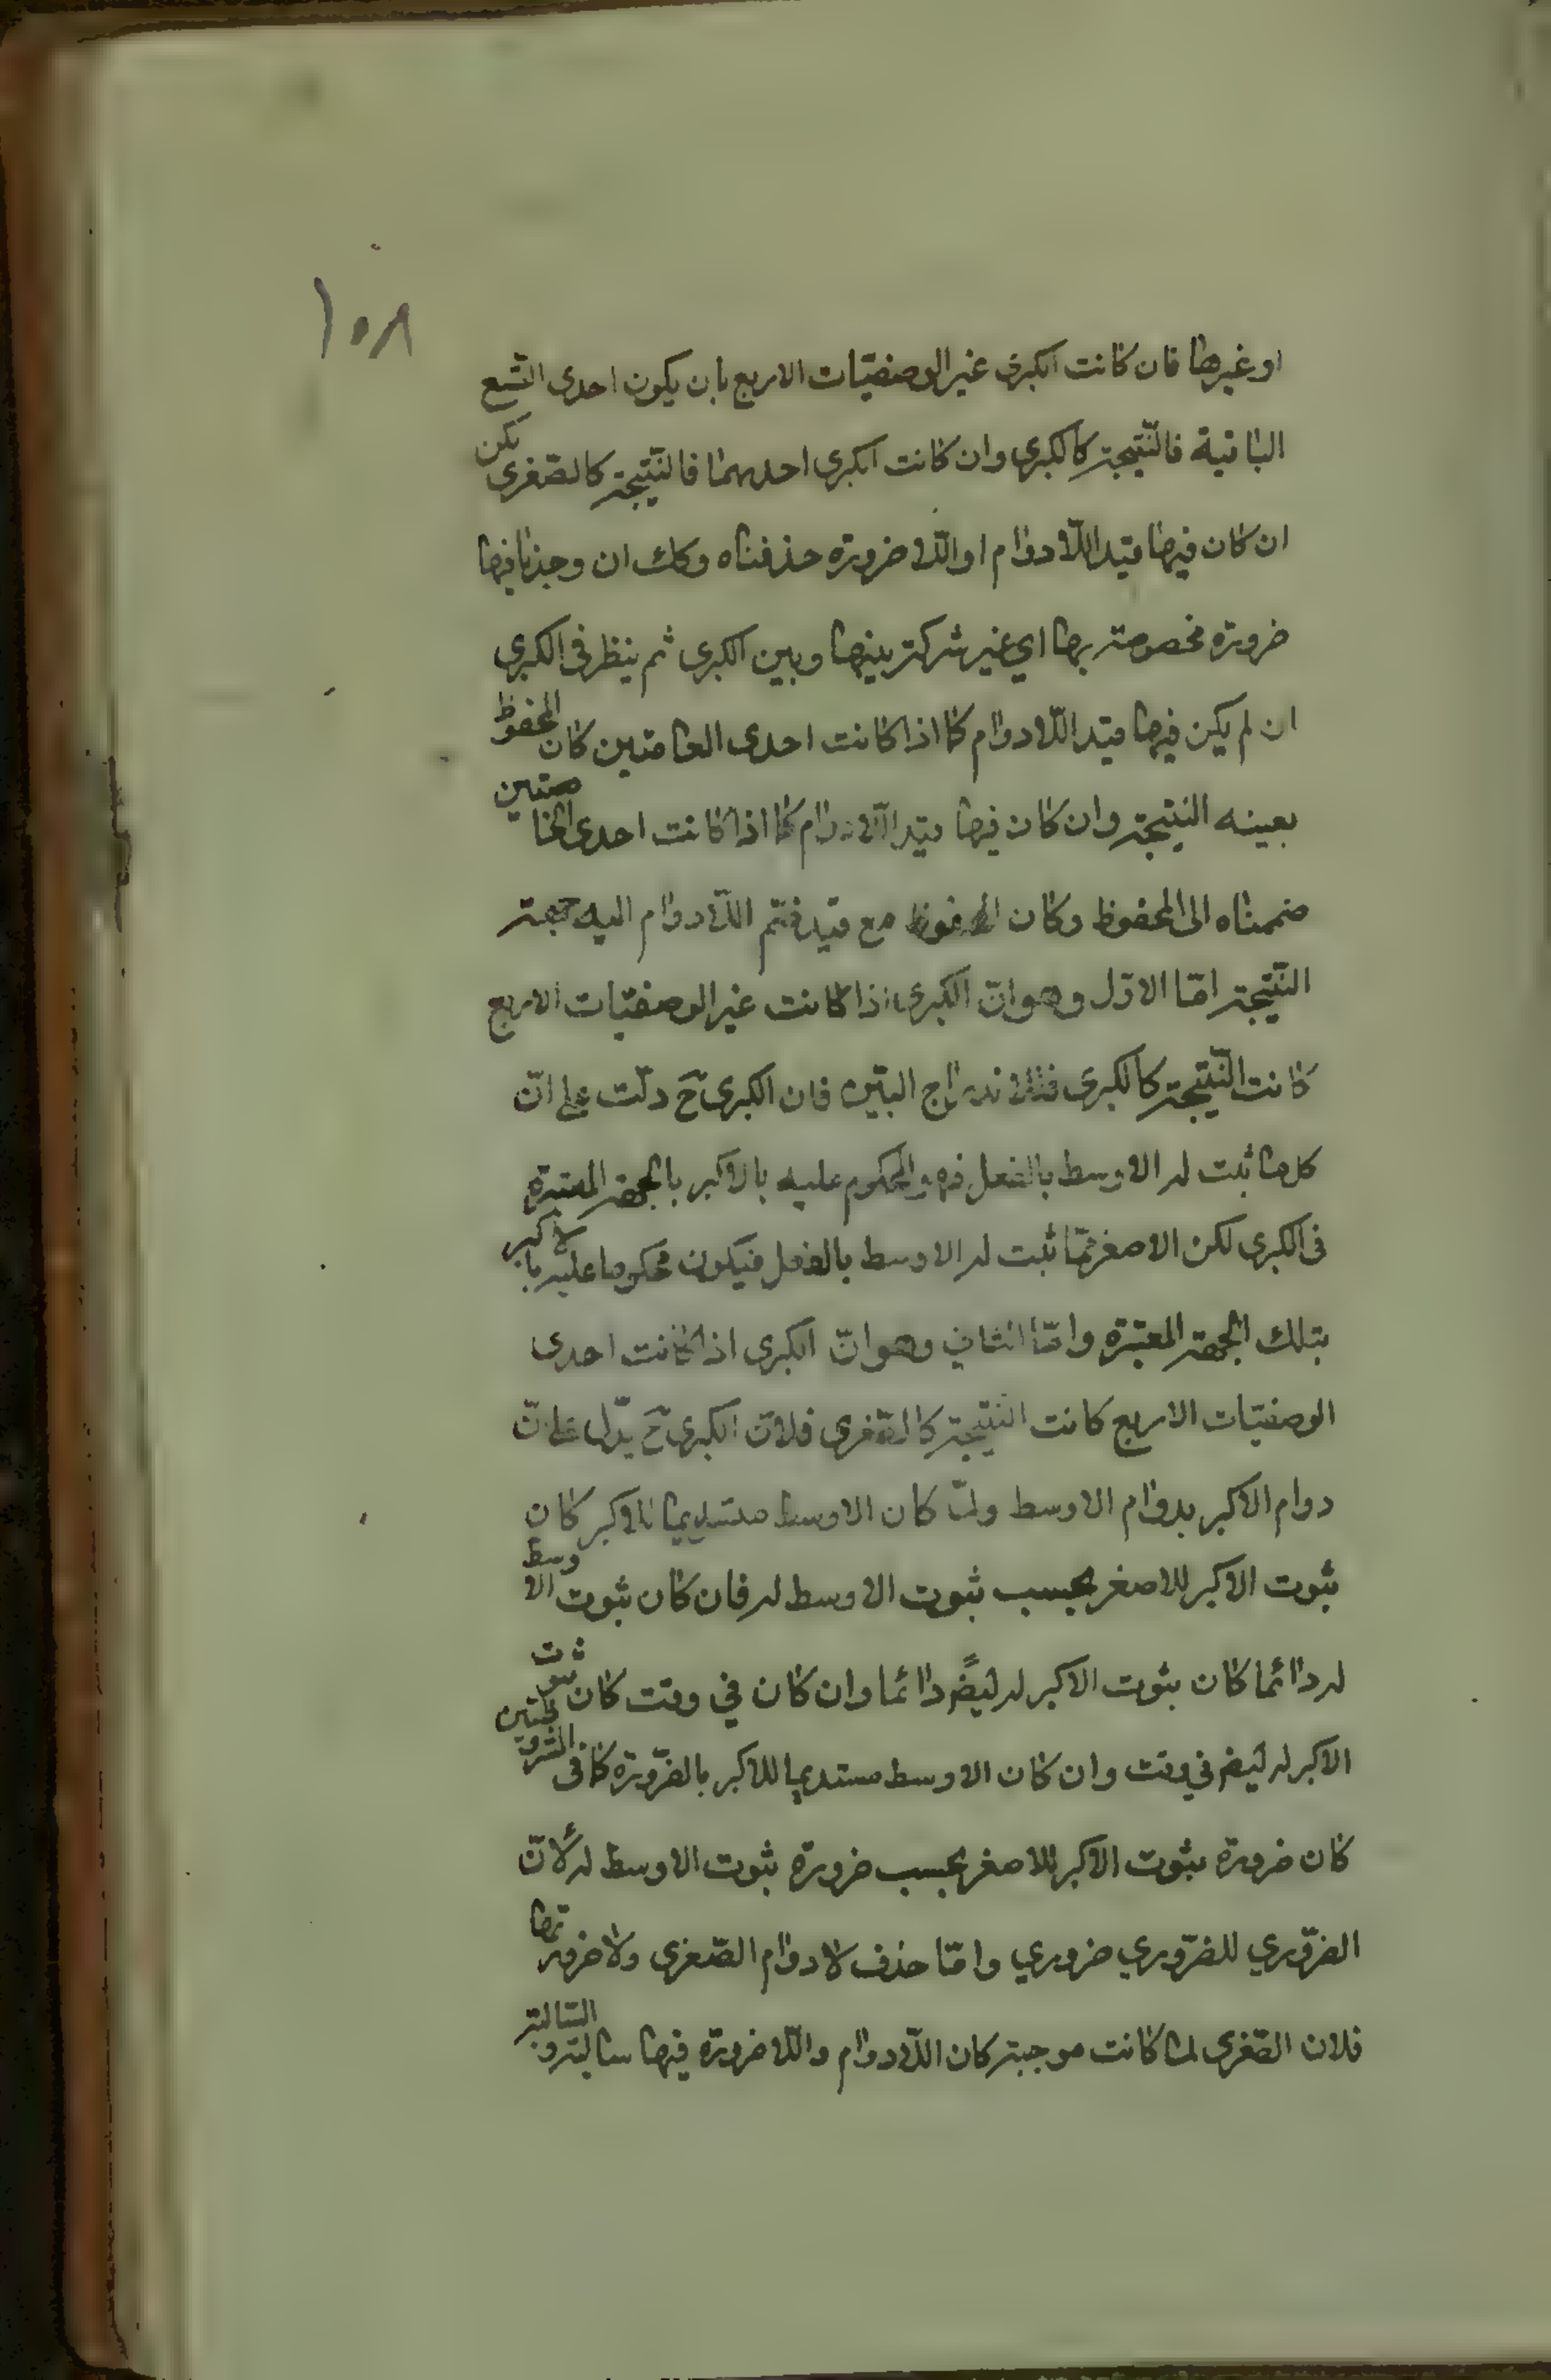 ١٠٨
او غيرها فان كانت الكبرى غير الوصفيّات الاربع بان يكون احدى التسع
الباقية فالنّتيجة كالكبرى وان كانت الكبرى احديهما فالنّتيجة كالصّغرى لكن
ان كان فيها قيد اللّادوام او اللّاضرورة حذفناه وكك ان وجدنا فيها
ضرورة مخصوصة بها اي غير مشتركة بينها وبين الكبرى ثم ينظر فى الكبرى
ان لم يكن فيها قيد اللّادوام كما اذا كانت احدى العامتين كان المحفوظ
بعينه النتيجة وان كان فيها قيد اللّادوام كما اذا كانت احدى الخاصتين
ضممناه الى المحفوظ وكان المحفوظ مع قيد فتم اللّادوام اليه جهة
النّتيجة امّا الاوّل وهو انّ الكبرى اذا كانت غير الوصفيّات الاربع
كانت النّتيجة كالكبرى فللاندراج البيّن فان الكبرى ح دلّت على انّ
كل ما ثبت له الاوسط بالفعل فهو المحكوم عليه بالاكبر بالجهة المعتبرة
فى الكبرى لكن الاصغر ممّا ثبت له الاوسط بالفعل فيكون محكوما عليه بالاكبر
بتلك الجهة المعتبرة وامّا الثاني وهو انّ الكبرى اذا كانت احدى
الوصفيّات الاربع كانت النّتيجة كالصّغرى فلانّ الكبرى ح يدّل على انّ
دوام الاكبر بدوام الاوسط ولمّا كان الاوسط مستديما للاكبر كان
ثبوت الاكبر للاصغر بحسب ثبوت الاوسط له فان كان ثبوت الاوسط
له دائما كان ثبوت الاكبر له ايضً دائما وان كان في وقت كان ثبوت
الاكبر له ايضً في وقت وان كان الاوسط مستديما للاكبر بالضّرورة كما فى المشروطتين
كان ضرورة ثبوت الاكبر للاصغر بحسب ضرورة ثبوت الاوسط له لأنّ
الضّروري للضّروري ضروري وامّا حذف لادوام الصّغرى ولاضرورتها
فلان الصّغرى لما كانت موجبة كان اللّادوام واللّاضرورة فيها سالبة و السّالبة